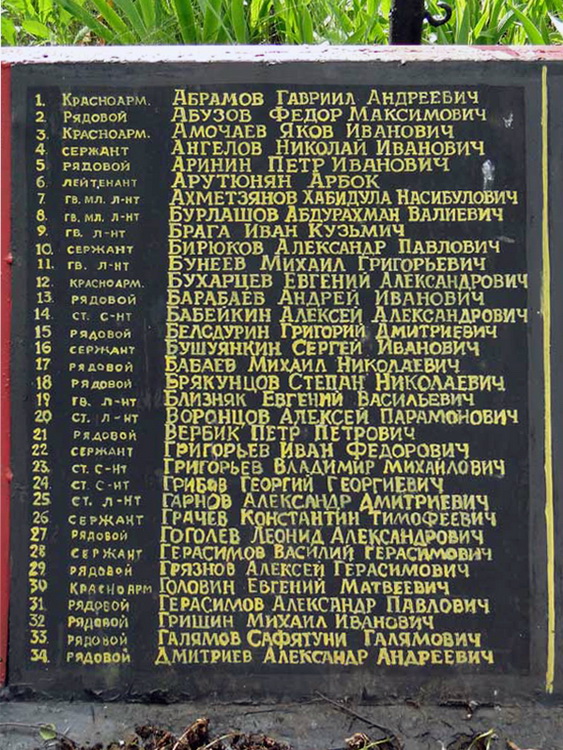 1. КРАСНОАРМ. АБРАМОВ ГАВРИИЛ АНДРЕЕВИЧ
2. РЯДОВОЙ АБУЗОВ ФЕДОР МАКСИМОВИЧ
3. КРАСНОАРМ. АМОЧАЕВ ЯКОВ ИВАНОВИЧ
4. СЕРЖАНТ АНГЕЛОВ НИКОЛАЙ ИВАНОВИЧ
5. РЯДОВОЙ АРИНИН ПЕТР ИВАНОВИЧ
6. ЛЕЙТЕНАНТ АРУТЮНЯН АРБОК
7. ГВ. МЛ. Л-НТ АХМЕТЗЯНОВ ХАБИДУЛА НАСИБУЛОВИЧ
8. ГВ. МЛ. Л-НТ БУРЛАШОВ АБДУРАХМАН ВАЛИЕВИЧ
9. ГВ. Л-НТ БРАГА ИВАН КУЗЬМИЧ
10. СЕРЖАНТ БИРЮКОВ АЛЕКСАНДР ПАВЛОВИЧ
11. ГВ. Л-НТ БУНЕЕВ МИХАИЛ ГРИГОРЬЕВИЧ
12 КРАСНОАРМ. БУХАРЦЕВ ЕВГЕНИЙ АЛЕКСАНДРОВИЧ
13. РЯДОВОЙ БАРАБАЕВ АНДРЕЙ ИВАНОВИЧ
14. СТ. С-НТ БАБЕЙКИН АЛЕКСЕЙ АЛЕКСАНДРОВИЧ
15 РЯДОВОЙ БЕЛСДУРИН ГРИГОРИЙ ДМИТРИЕВИЧ
16 СЕРЖАНТ БУШУЯНКИН СЕРГЕЙ ИВАНОВИЧ
17 РЯДОВОЙ БАБАЕВ МИХАИЛ НИКОЛАЕВИЧ
18 РЯДОВОЙ БРЯКУНЦОВ СТЕПАН НИКОЛАЕВИЧ
19 ГВ. Л-НТ БЛИЗНЯК ЕВГЕНИЙ ВАСИЛЬЕВИЧ
20 СТ. Л-НТ ВОРОНЦОВ АЛЕКСЕЙ ПАРАМОНОВИЧ
21 РЯДОВОЙ ВЕРБИК ПЕТР ПЕТРОВИЧ
22 СЕРЖАНТ ГРИГОРЬЕВ ИВАН ФЕДОРОВИЧ
23. СТ. С-НТ ГРИГОРЬЕВ ВЛАДИМИР МИХАЙЛОВИЧ
24. СТ. С-НТ ГРИБОВ ГЕОРГИЙ ГЕОРГИЕВИЧ
25 СТ. Л-НТ ГАРНОВ АЛЕКСАНДР ДМИТРИЕВИЧ
26 СЕРЖАНТ ГРАЧЕВ КОНСТАНТИН ТИМОФЕЕВИЧ
27 РЯДОВОЙ ГОГОЛЕВ ЛЕОНИД АЛЕКСАНДРОВИЧ
28 СЕРЖАНТ ГЕРАСИМОВ ВАСИЛИЙ ГЕРАСИМОВИЧ
29. РЯДОВОЙ ГРЯЗНОВ АЛЕКСЕЙ ГЕРАСИМОВИЧ
30 КРАСНОАРМ ГОЛОВИН ЕВГЕНИЙ МАТВЕЕВИЧ
31. РЯДОВОЙ ГЕРАСИМОВ АЛЕКСАНДР ПАВЛОВИЧ
32. РЯДОВОЙ ГРИШИН МИХАИЛ ИВАНОВИЧ
33. РЯДОВОЙ ГАЛЯМОВ САФЯТУНИ ГАЛЯМОВИЧ
34. РЯДОВОЙ ДМИТРИЕВ АЛЕКСАНДР АНДРЕЕВИЧ